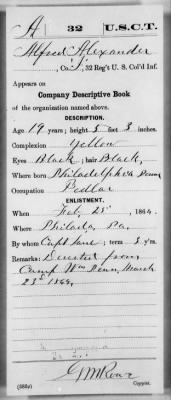 A | 32 | U.S.C.T.
Alfred Alexander
, Co. I, 32 Reg't U. S. Col'd Inf.
Appears on
Company Descriptive Book
of the organization named above.
DESCRIPTION.
Age 19 years; height 5 feet 3 inches.
Complexion Yellow
Eyes Black; hair Black
Where born Philadelphia Penn
Occupation Pedlar
ENLISTMENT.
When Feb. 25, 1864.
Where Philada, Pa.
By whom Capt Lane; term 3 y'rs.
Remarks: Deserted from
Camp Wm Penn, March
23d 1864.
(383g)
Copyist.